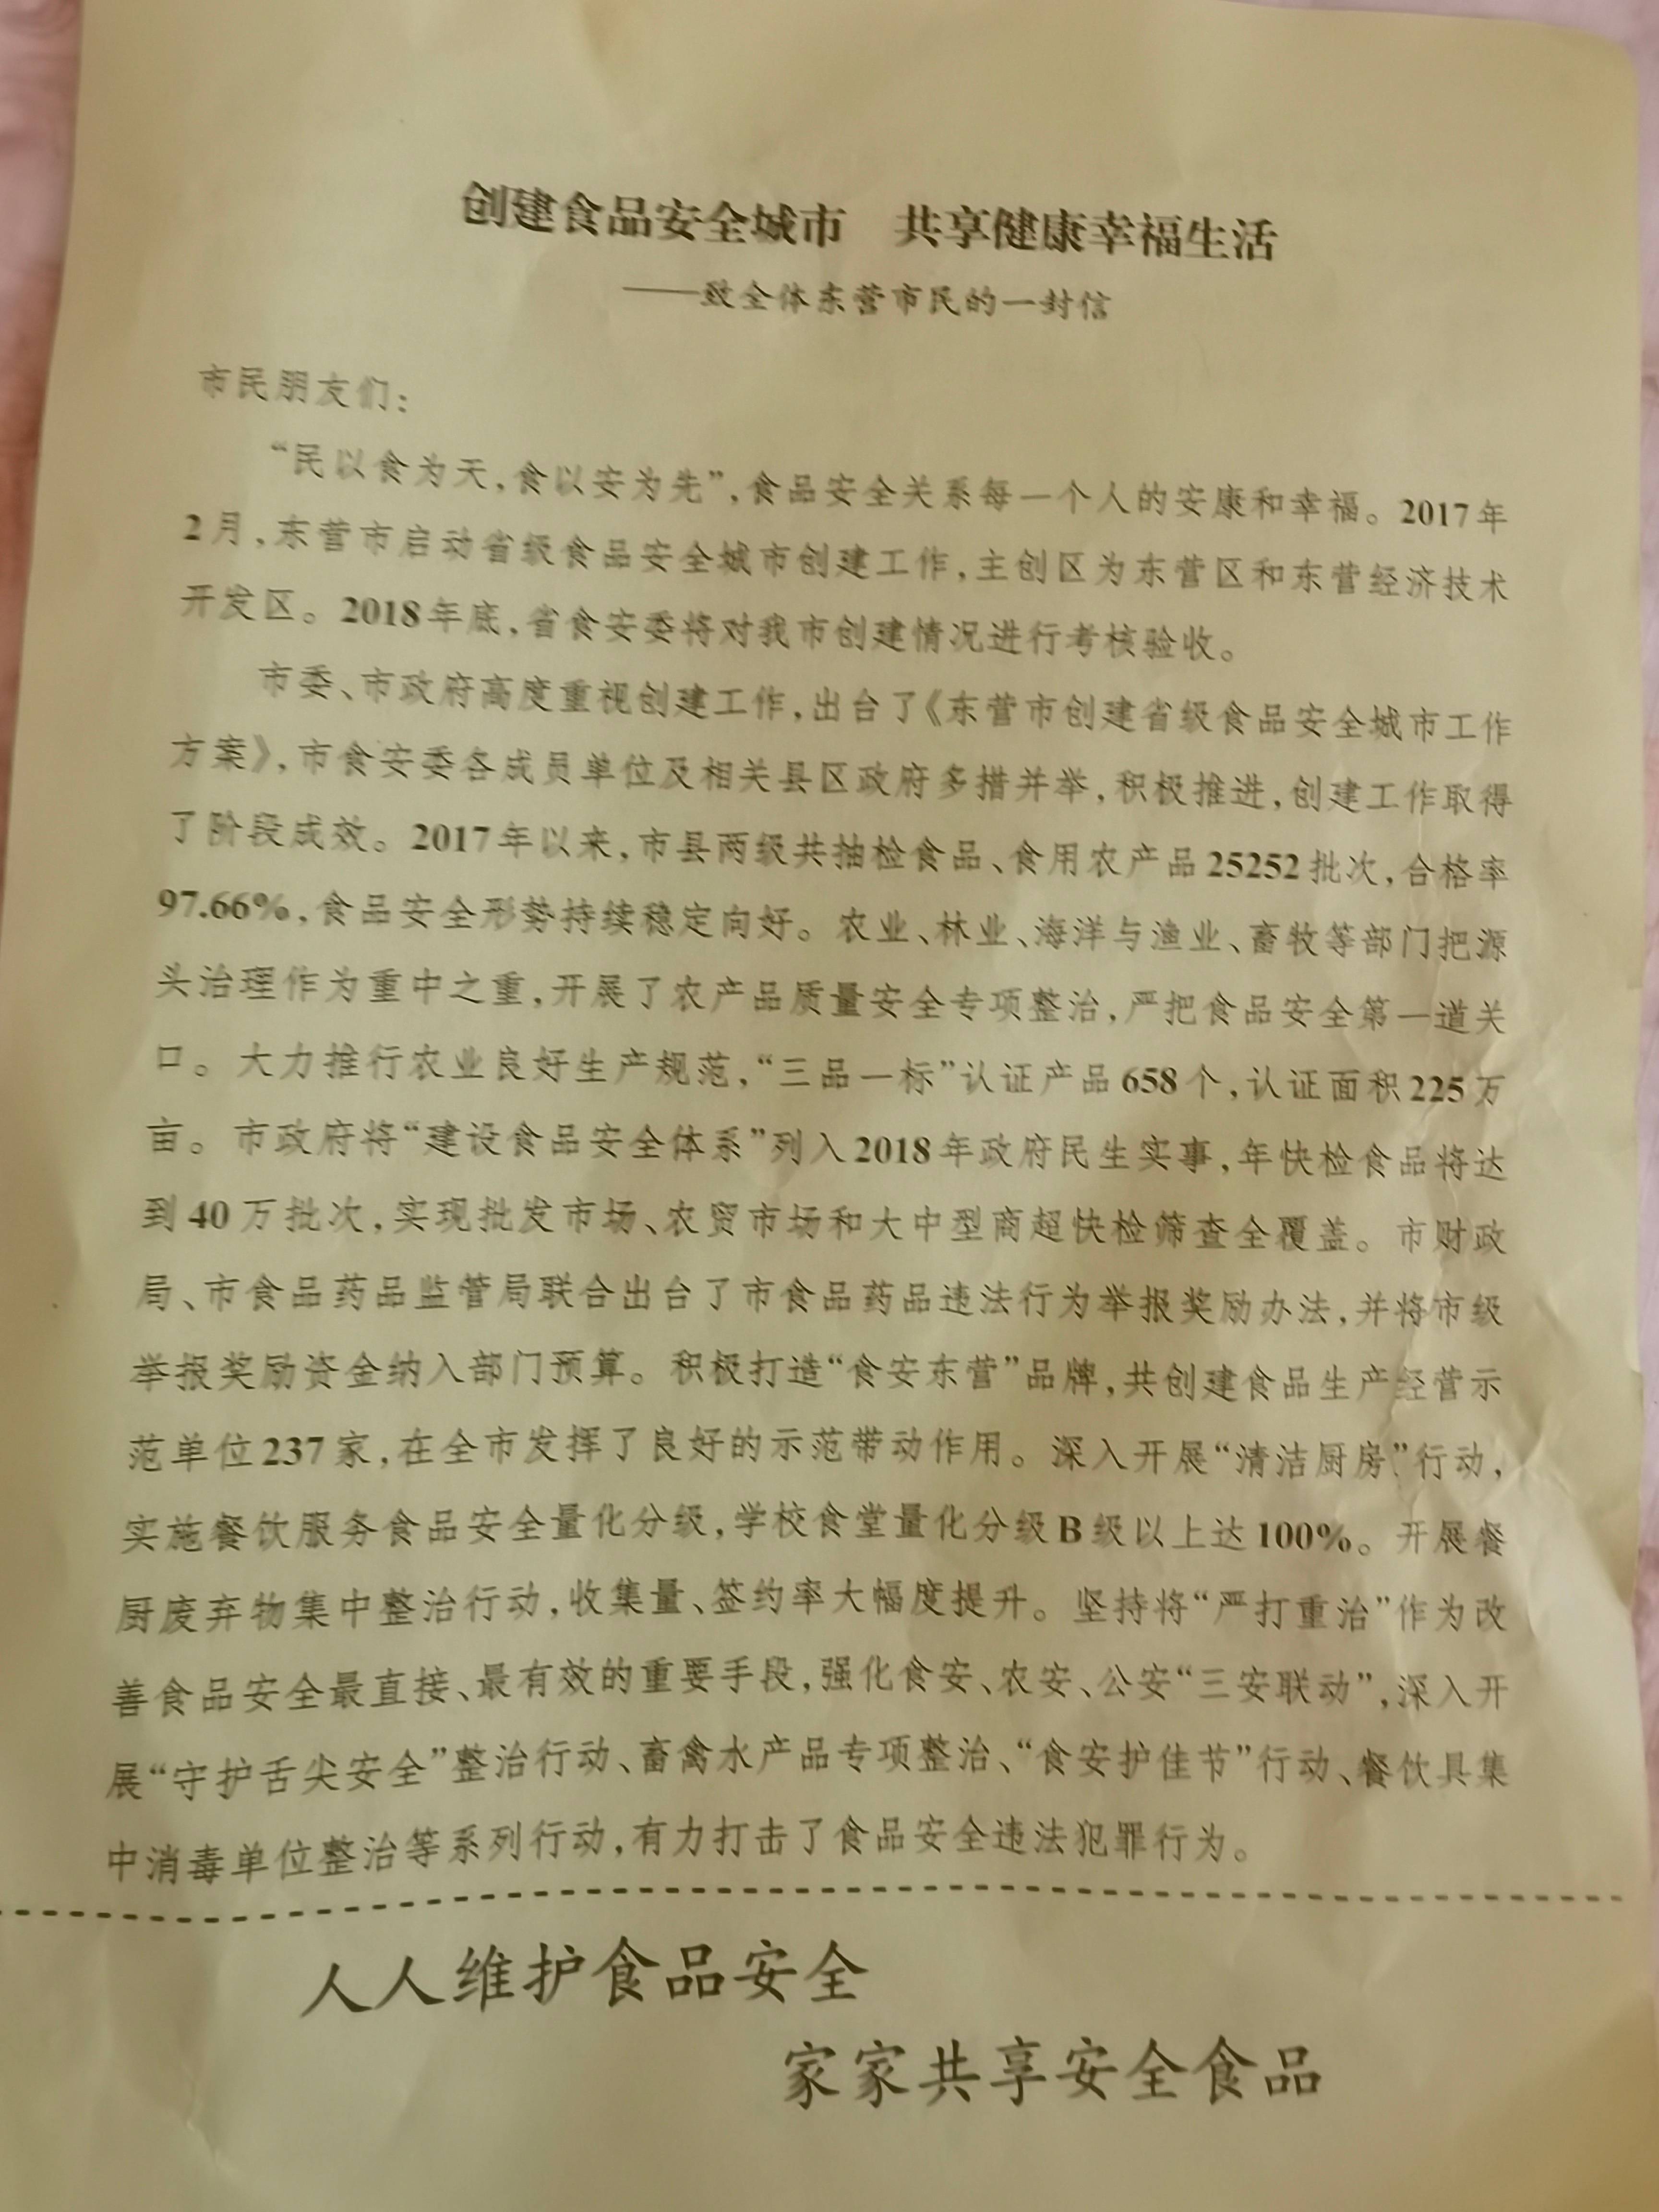 创建食品安全城市　共享健康幸福生活
——致全体东营市民的一封信
市民朋友们：
“民以食为天，食以安为先”，食品安全关系每一个人的安康和幸福。2017年
2月，东营市启动省级食品安全城市创建工作，主创区为东营区和东营经济技术
开发区。2018年底，省食安委将对我市创建情况进行考核验收。
市委、市政府高度重视创建工作，出台了《东营市创建省级食品安全城市工作
方案》，市食安委各成员单位及相关县区政府多措并举，积极推进，创建工作取得
了阶段成效。2017年以来，市县两级共抽检食品、食用农产品25252批次，合格率
97.66%，食品安全形势持续稳定向好。农业、林业、海洋与渔业、畜牧等部门把源
头治理作为重中之重，开展了农产品质量安全专项整治，严把食品安全第一道关
口。大力推行农业良好生产规范，“三品一标”认证产品658个，认证面积225万
亩。市政府将“建设食品安全体系”列入2018年政府民生实事，年快检食品将达
到40万批次，实现批发市场、农贸市场和大中型商超快检筛查全覆盖。市财政
局、市食品药品监管局联合出台了市食品药品违法行为举报奖励办法，并将市级
举报奖励资金纳入部门预算。积极打造“食安东营”品牌，共创建食品生产经营示
范单位237家，在全市发挥了良好的示范带动作用。深入开展“清洁厨房”行动，
实施餐饮服务食品安全量化分级，学校食堂量化分级B级以上达100%。开展餐
厨废弃物集中整治行动，收集量、签约率大幅度提升。坚持将“严打重治”作为改
善食品安全最直接、最有效的重要手段，强化食安、农安、公安“三安联动”，深入开
展“守护舌尖安全”整治行动、畜禽水产品专项整治、“食安护佳节”行动、餐饮具集
中消毒单位整治等系列行动，有力打击了食品安全违法犯罪行为。
人人维护食品安全
家家共享安全食品